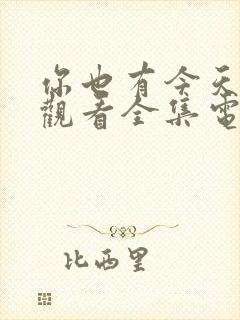 你也有今天
觀看全集電
比西里